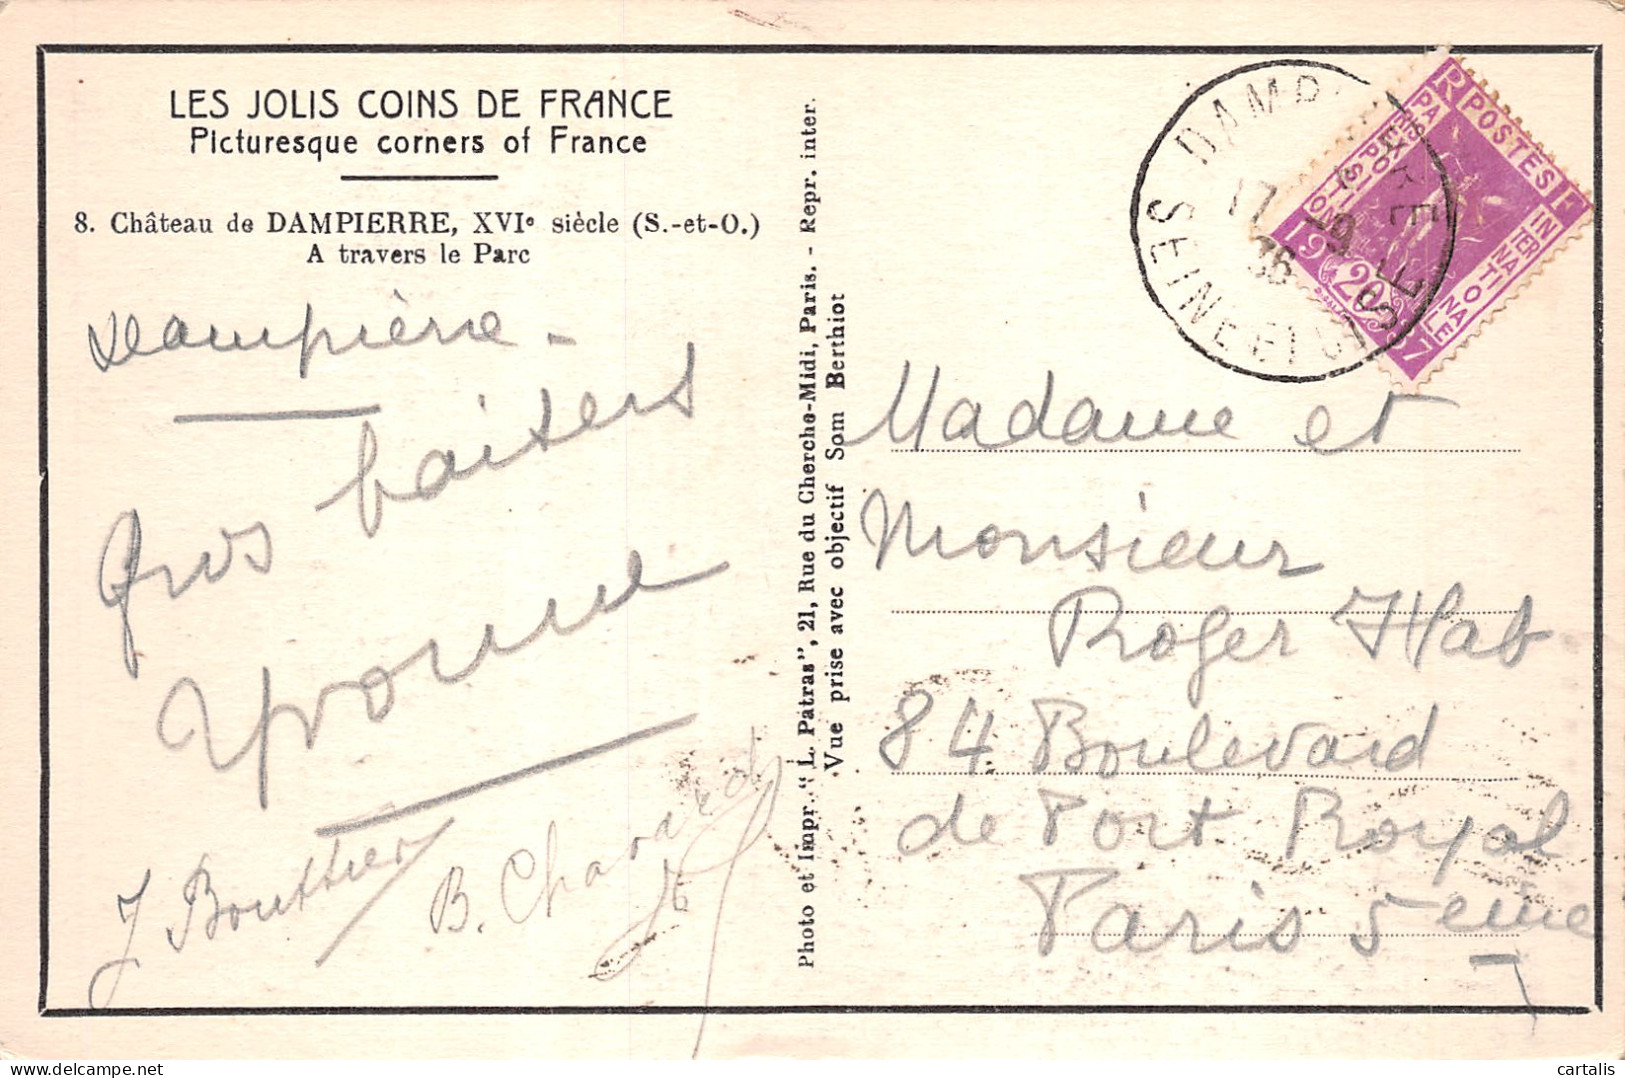 LES JOLIS COINS DE FRANCE
Picturesque corners of France
8. Château de DAMPIERRE, XVIe siècle (S.-et-O.)
A travers le Parc
Dampierre -
Gros baisers
Yvonne
J Bouthier
B. Chavard
Photo et Impr. "L. Patras", 21, Rue du Cherche-Midi, Paris. - Repr. inter.
Vue prise avec objectif Som Berthiot
DAMPIERRE
17 -9
36
SEINE ET OISE
RF POSTES
EXPOSITION INTERNATIONALE
PARIS 1937
20
Madame et
Monsieur
Roger Hab
84 Boulevard
de Port Royal
Paris 5eme
cartalis
delcampe.net